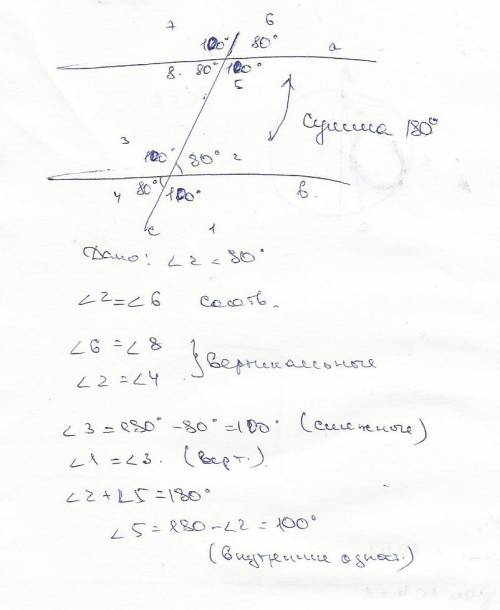 7 6
100° 80° a
8. 80° 100°
5
Сумма 180°
3
100° 80° 2
4 80° 100° в.
c 1
Дано: ∠2 = 80°
∠2 = ∠6 соотв.
∠6 = ∠8
∠2 = ∠4 } вертикальные
∠3 = 180° - 80° = 100° (смежные)
∠1 = ∠3. (верт.)
∠2 + ∠5 = 180°
∠5 = 180 - ∠2 = 100°
(внутренние одност.)